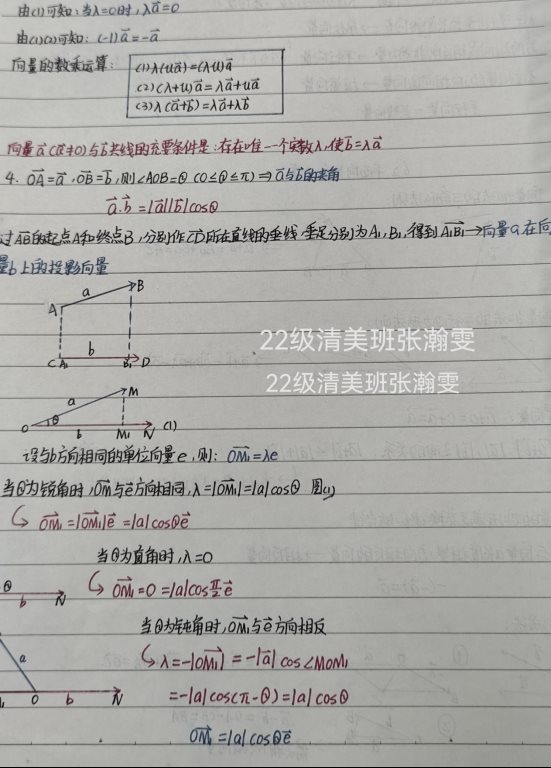 由(1)可知:当λ=0时,λa⃗=0
由(1)(2)可知:(-1)a⃗=-a⃗
向量的数乘运算:
(1)λ(ua⃗)=(λu)a⃗
(2)(λ+u)a⃗=λa⃗+ua⃗
(3)λ(a⃗+b⃗)=λa⃗+λb⃗
向量a⃗(a⃗≠0)与b⃗共线的充要条件是:存在唯一个实数λ,使b⃗=λa⃗
4. OA⃗=a⃗,OB⃗=b⃗,则∠AOB=θ(0≤θ≤π)⇒a⃗与b⃗的夹角
a⃗.b⃗=|a⃗||b⃗|cosθ
过AB⃗的起点A和终点B,分别作CD⃗所在直线的垂线,垂足分别为A₁,B₁,得到A₁B₁⃗→向量a在向
量b上的投影向量
a
B
A
b
C A₁ B₁ D
22级清美班张瀚雯
22级清美班张瀚雯
a
M
O θ b M₁ N (1)
设与b方向相同的单位向量e,则:OM₁⃗=λe
当θ为锐角时,OM₁⃗与e⃗方向相同,λ=|OM₁⃗|=|a|cosθ 图(1)
↳ OM₁⃗=|OM₁⃗|e⃗=|a|cosθe⃗
当θ为直角时,λ=0
θ
b N
↳ OM₁⃗=0=|a|cosπ/2e⃗
当θ为钝角时,OM₁⃗与e⃗方向相反
↳ λ=-|OM₁⃗|=-|a⃗|cos∠MOM₁
a
O b N
=-|a|cos(π-θ)=|a|cosθ
OM₁⃗=|a|cosθe⃗